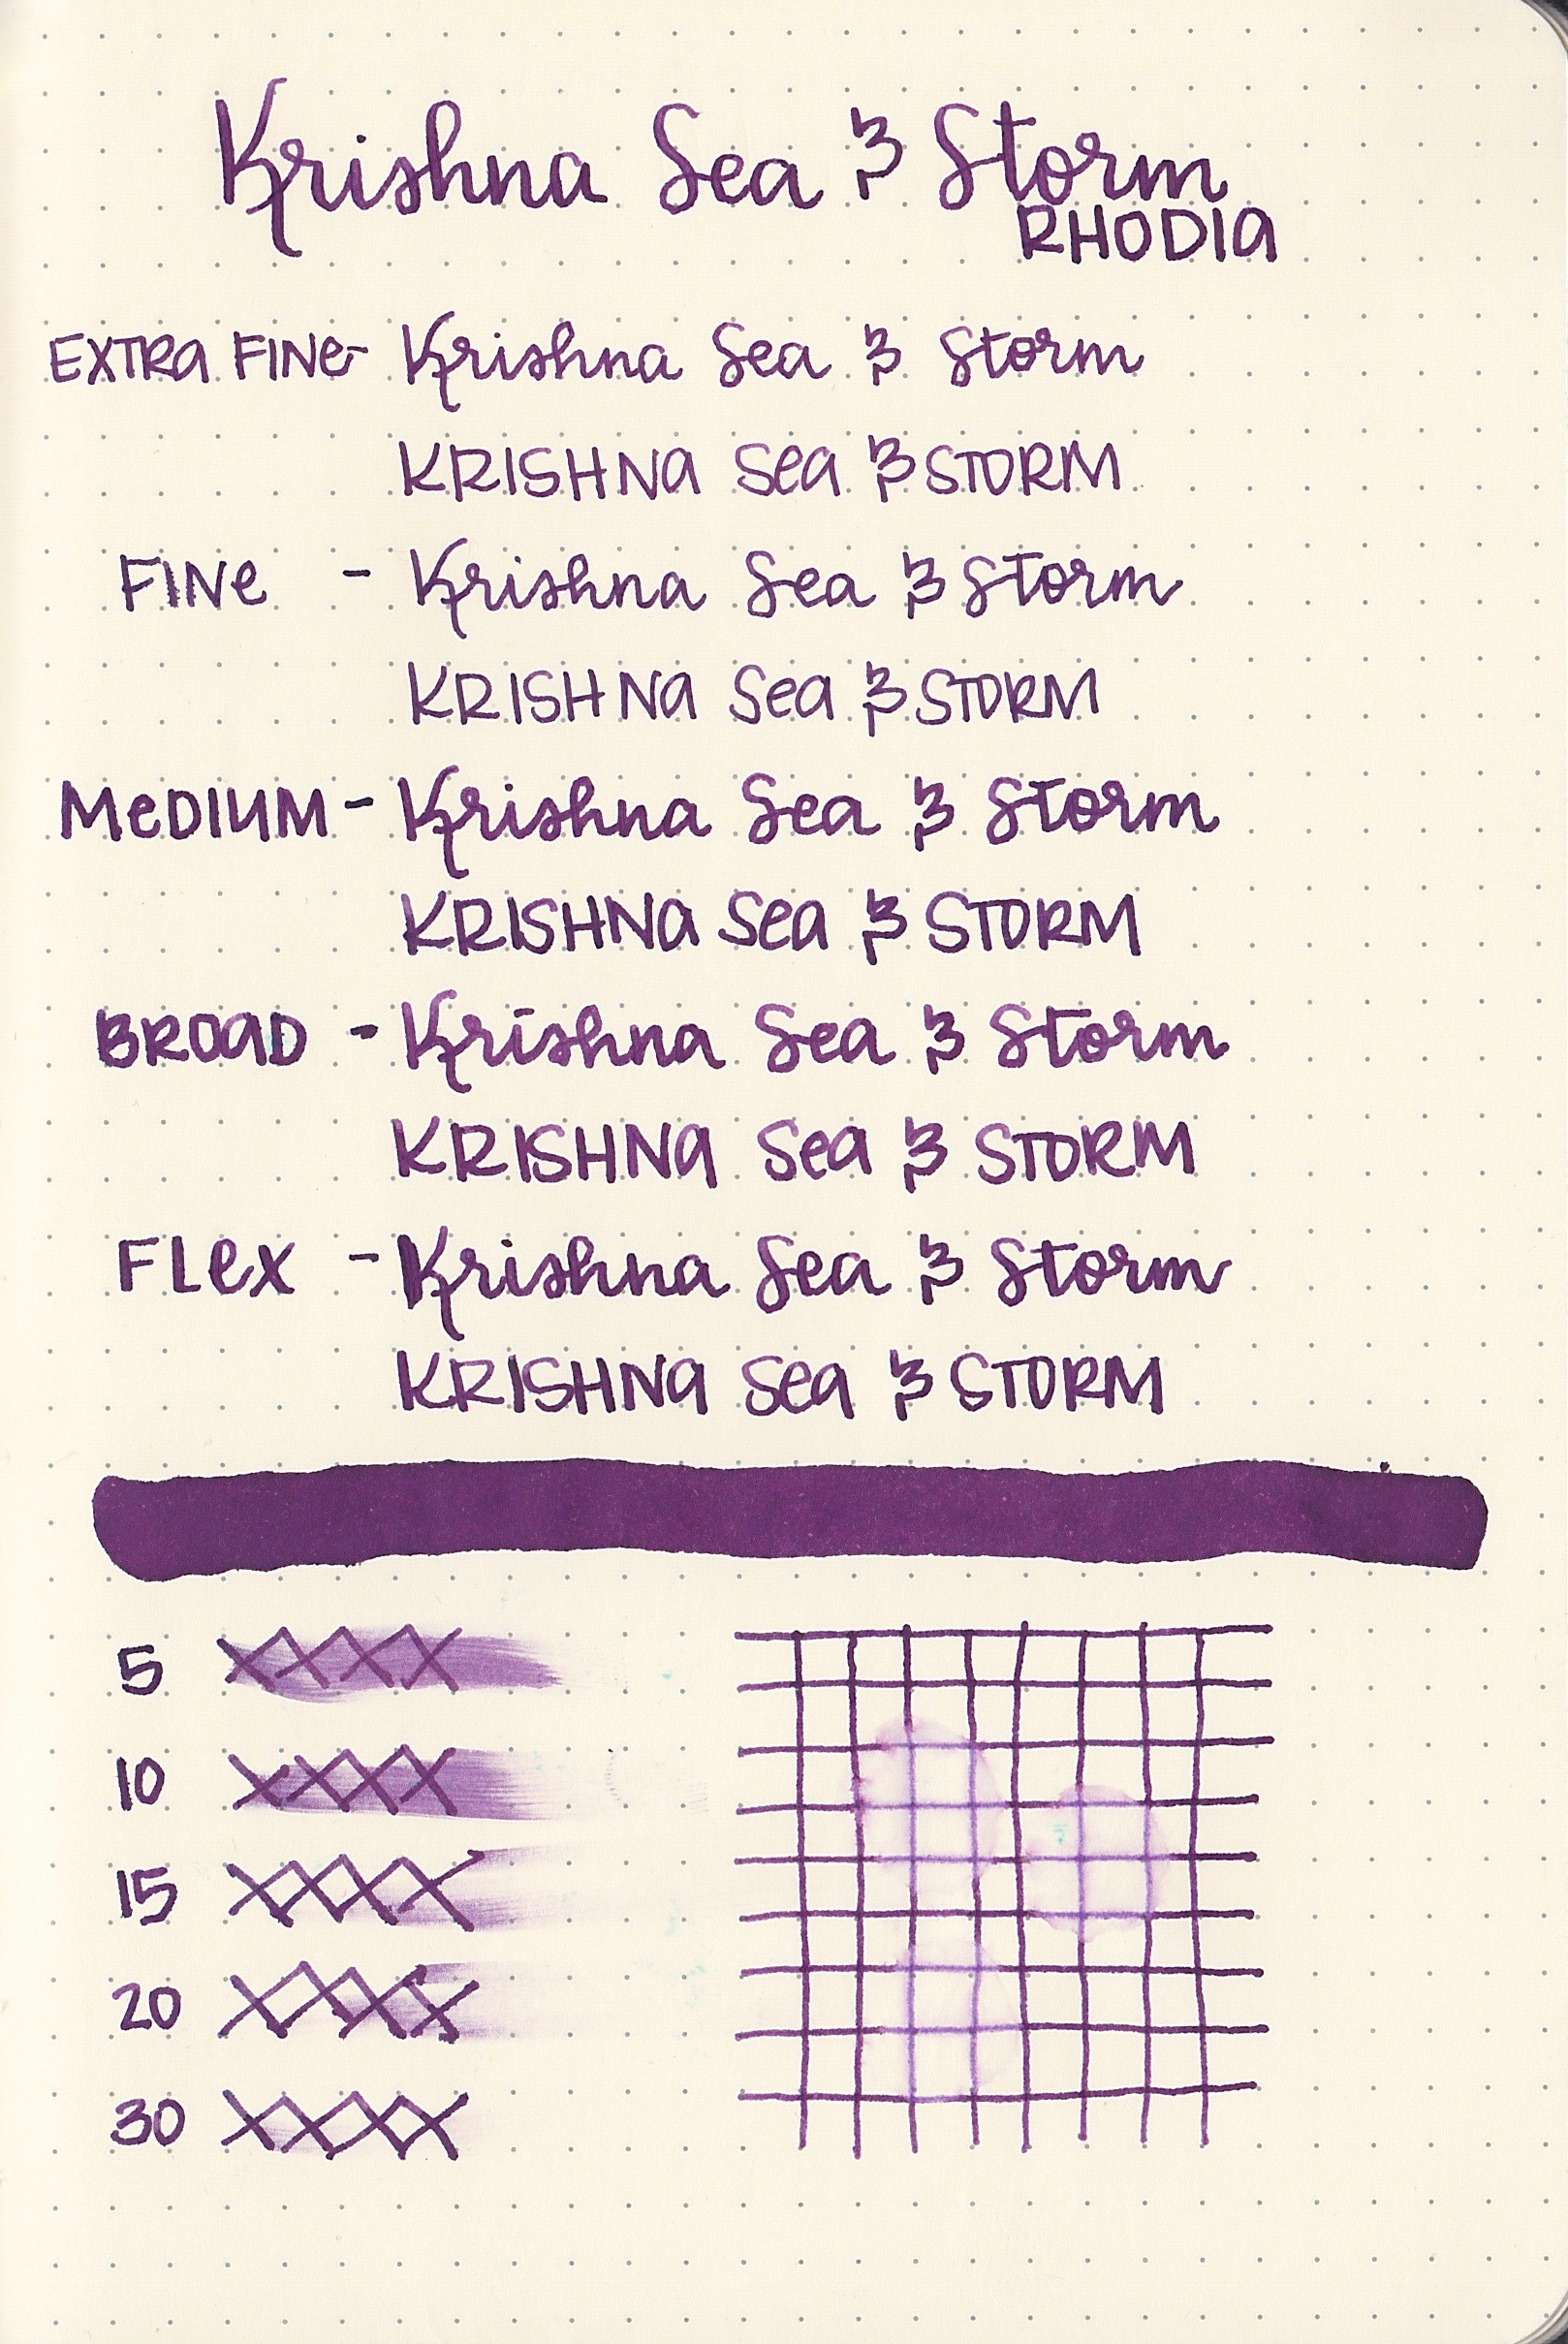 Krishna Sea & Storm
RHODIA
EXTRA FINE- Krishna Sea & Storm
KRISHNA Sea & STORM
FINe - Krishna Sea & Storm
KRISHNA Sea & STORM
MeDIUM - Krishna Sea & Storm
KRISHNA Sea & STORM
BROAD - Krishna Sea & Storm
KRISHNA Sea & STORM
FLex - Krishna Sea & Storm
KRISHNA Sea & STORM
5 XXXX
10 XXXX
15 XXXX
20 XXXX
30 XXXX